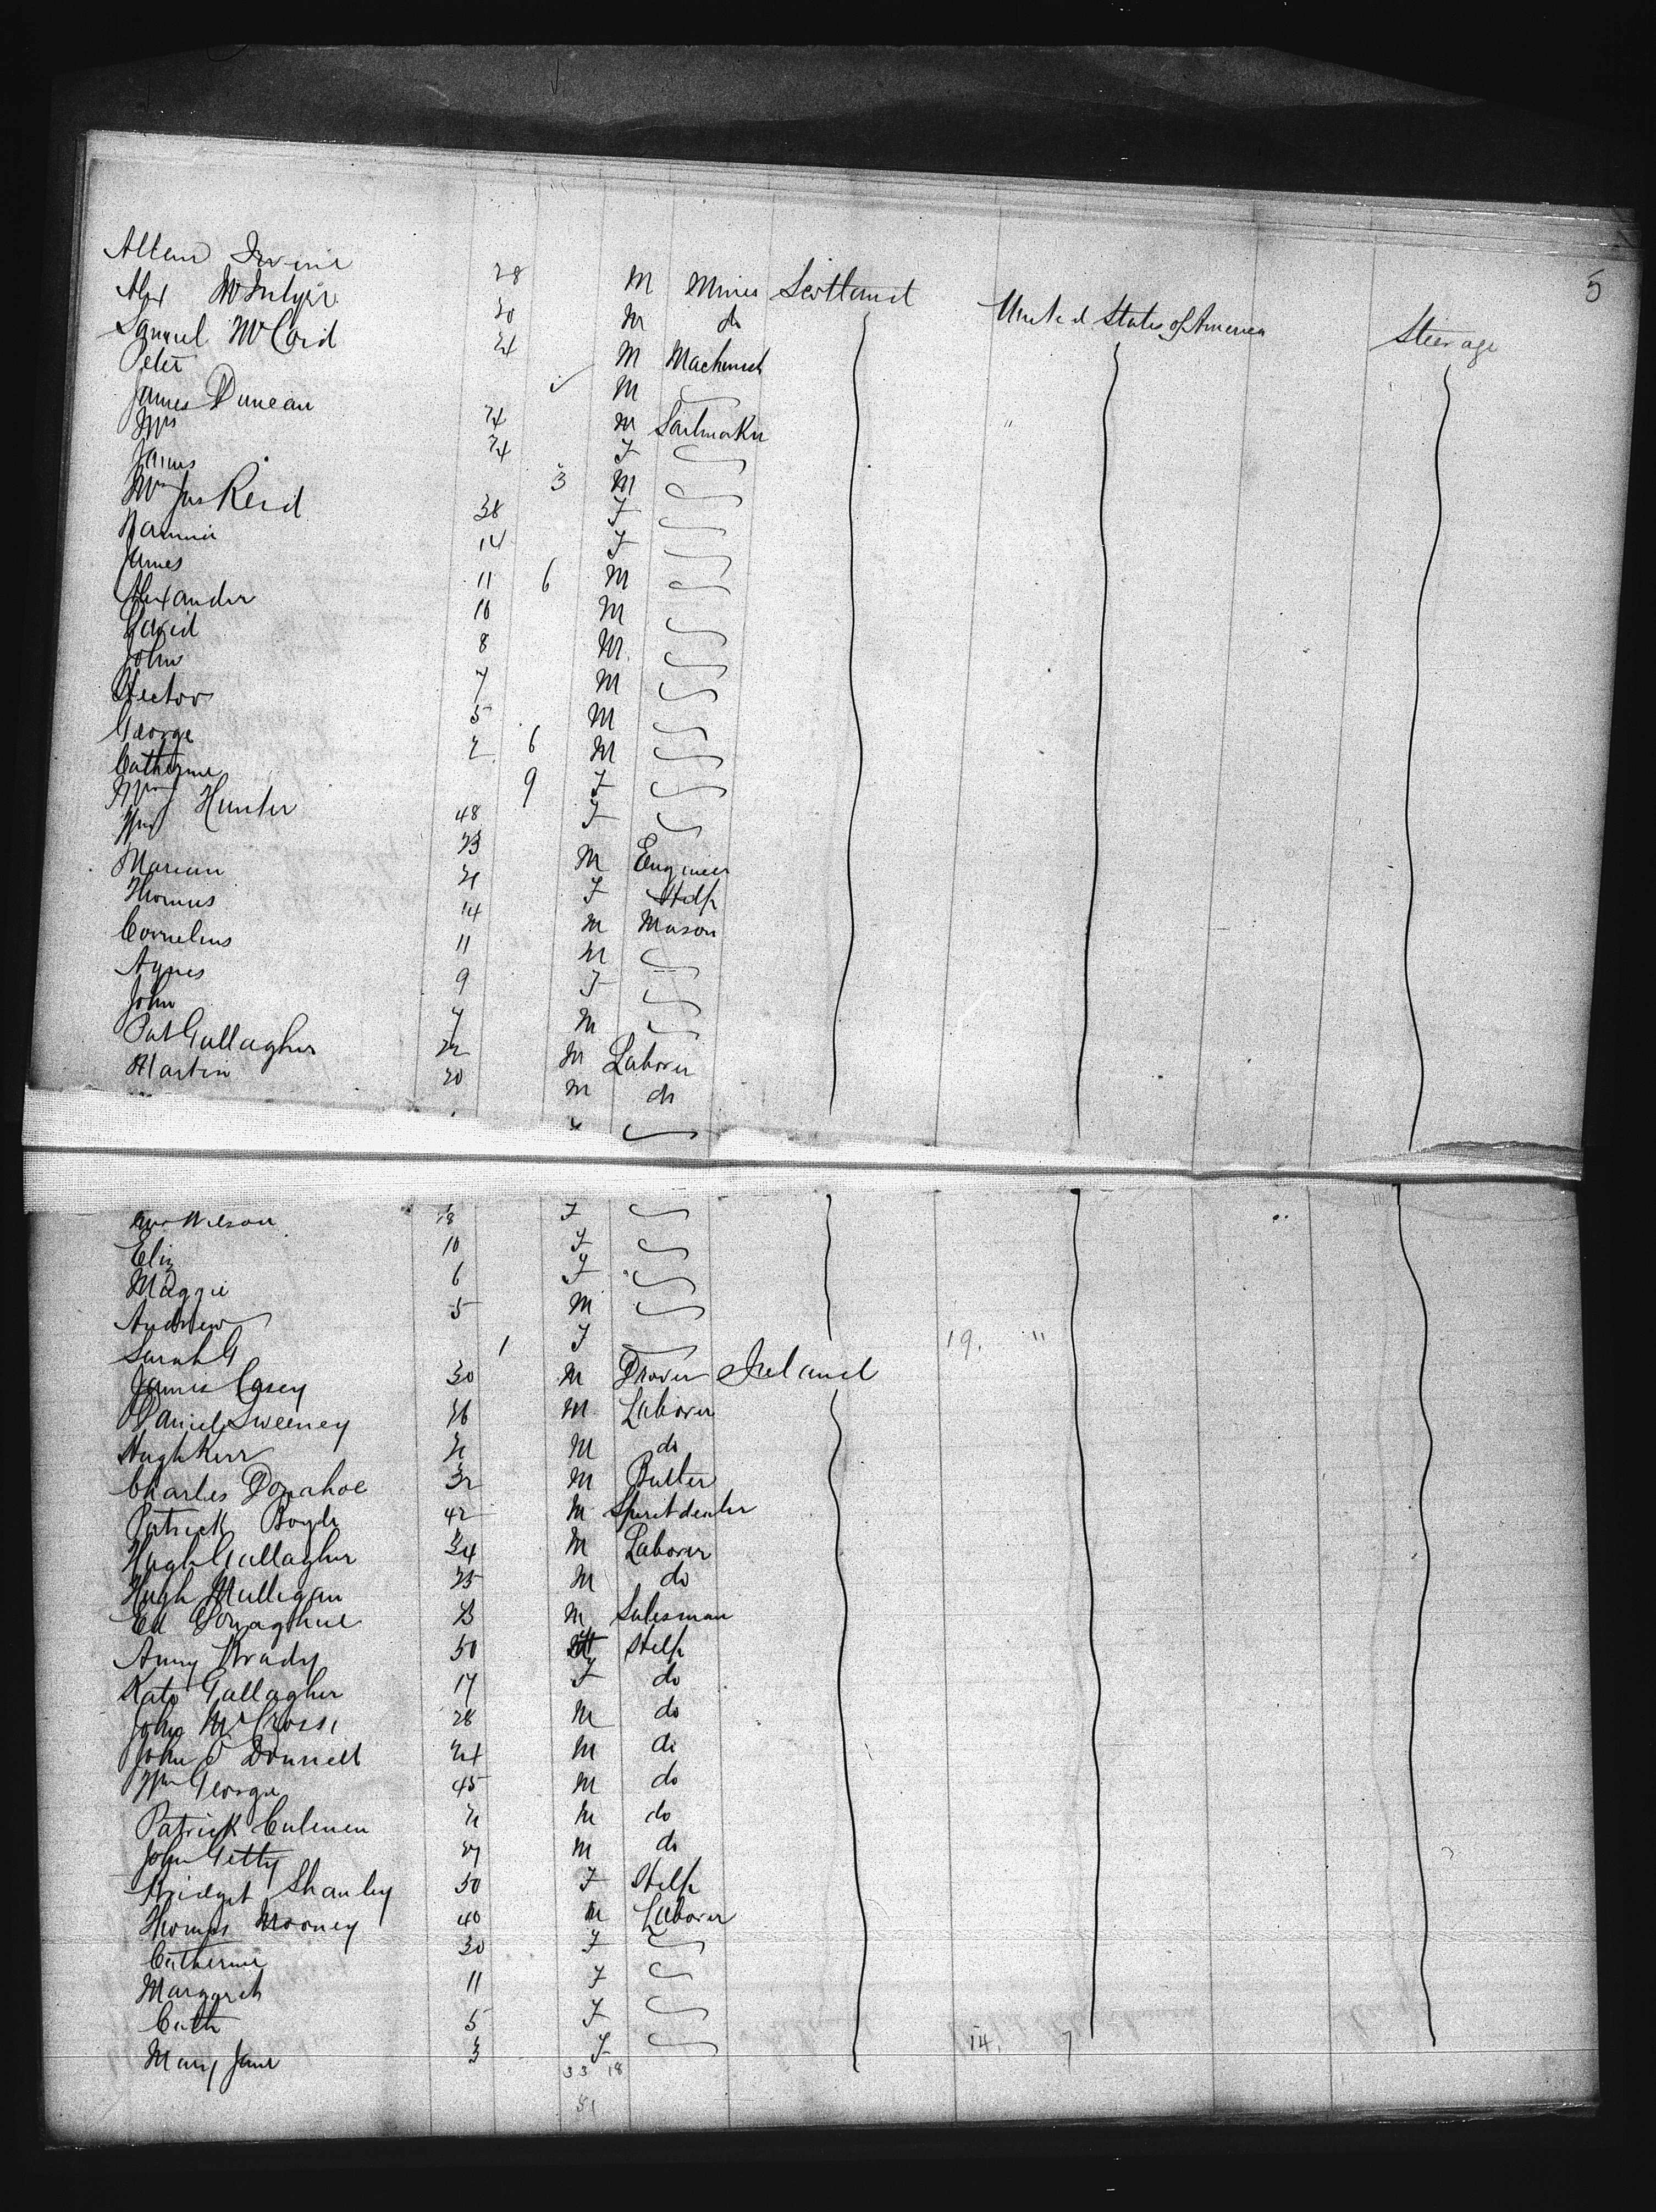 5
Allan Irvine 28 M Miner Scotland United States of America Steerage
Alex McIntyre 20 M do
Samuel McCaid 24 M Machinist
Peter M
James Duncan 24 M Sailmaker "
Mrs 24 F
James 3 M
Mrs Jas Reid 38 F
14 F
James 11 6 M
Alexander 10 M
David 8 M
John 7 M
Hector 5 M
George 2 6 M
Catherine 9 F
Mrs Hunter 48 F
Wm 23 M Engineer
Marian 21 F Help
Thomas 14 M Mason
Cornelius 11 M
Agnes 9 F
John 7 M
Pat Gallagher 22 M Laborer
Martin 20 M do
Wilson 28 F
Eliz 10 F
Maggie 6 F
Andrew 5 M
Sarah G 1 F 19. "
James Casey 30 M Drover Ireland
Daniel Sweeney 26 M Laborer
Hugh Kerr 21 M do
Charles Donahoe 32 M Butler
Patrick Boyle 42 M Spirit dealer
Hugh Gallagher 34 M Laborer
Hugh Mulligan 25 M do
Ed Donaghue 23 M Salesman
Anny Brady 50 F Help
Kate Gallagher 17 F do
John McCrossi 28 M do
John O Donnell 24 M do
Wm George 45 M do
Patrick Culenen 21 M do
John Getty 27 M do
Bridget Shanley 50 F Help
Thomas Mooney 40 M Laborer
Catherine 30 F
Margaret 11 F
Cath 5 F
Mary Jane 3 F 14. 7
33 18
51